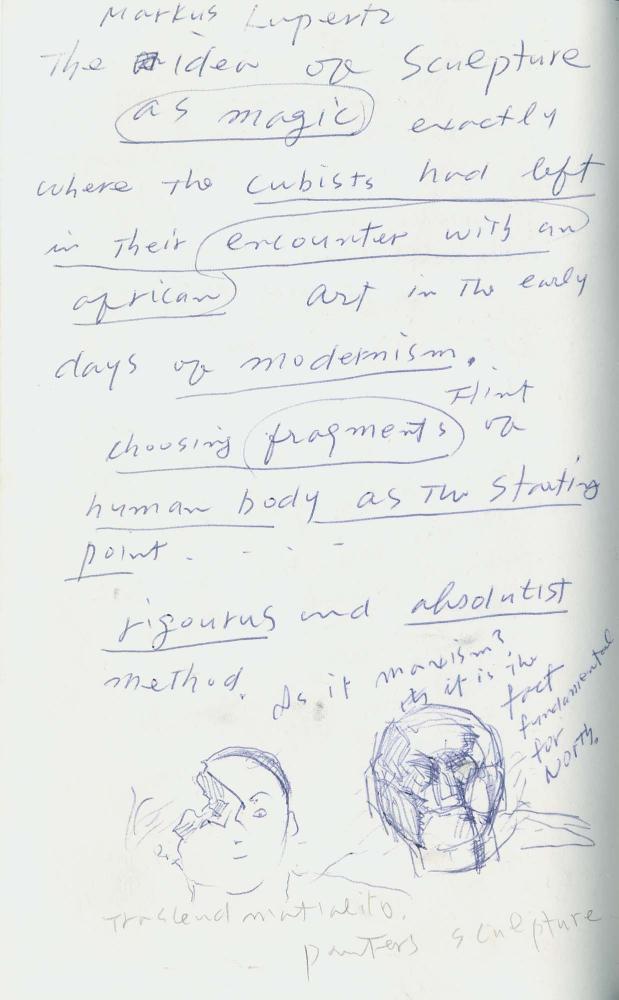 Markus Lupertz
The idea of Sculpture
as magic exactly
where the cubists had left
in their encounter with an
african art in the early
days of modernism.
Flint
choosing fragments of
human body as the starting
point. - . -
rigourus and absolutist
method. Is it marxism?
it is the
fact
fundamental
for
North.
painters sculpture